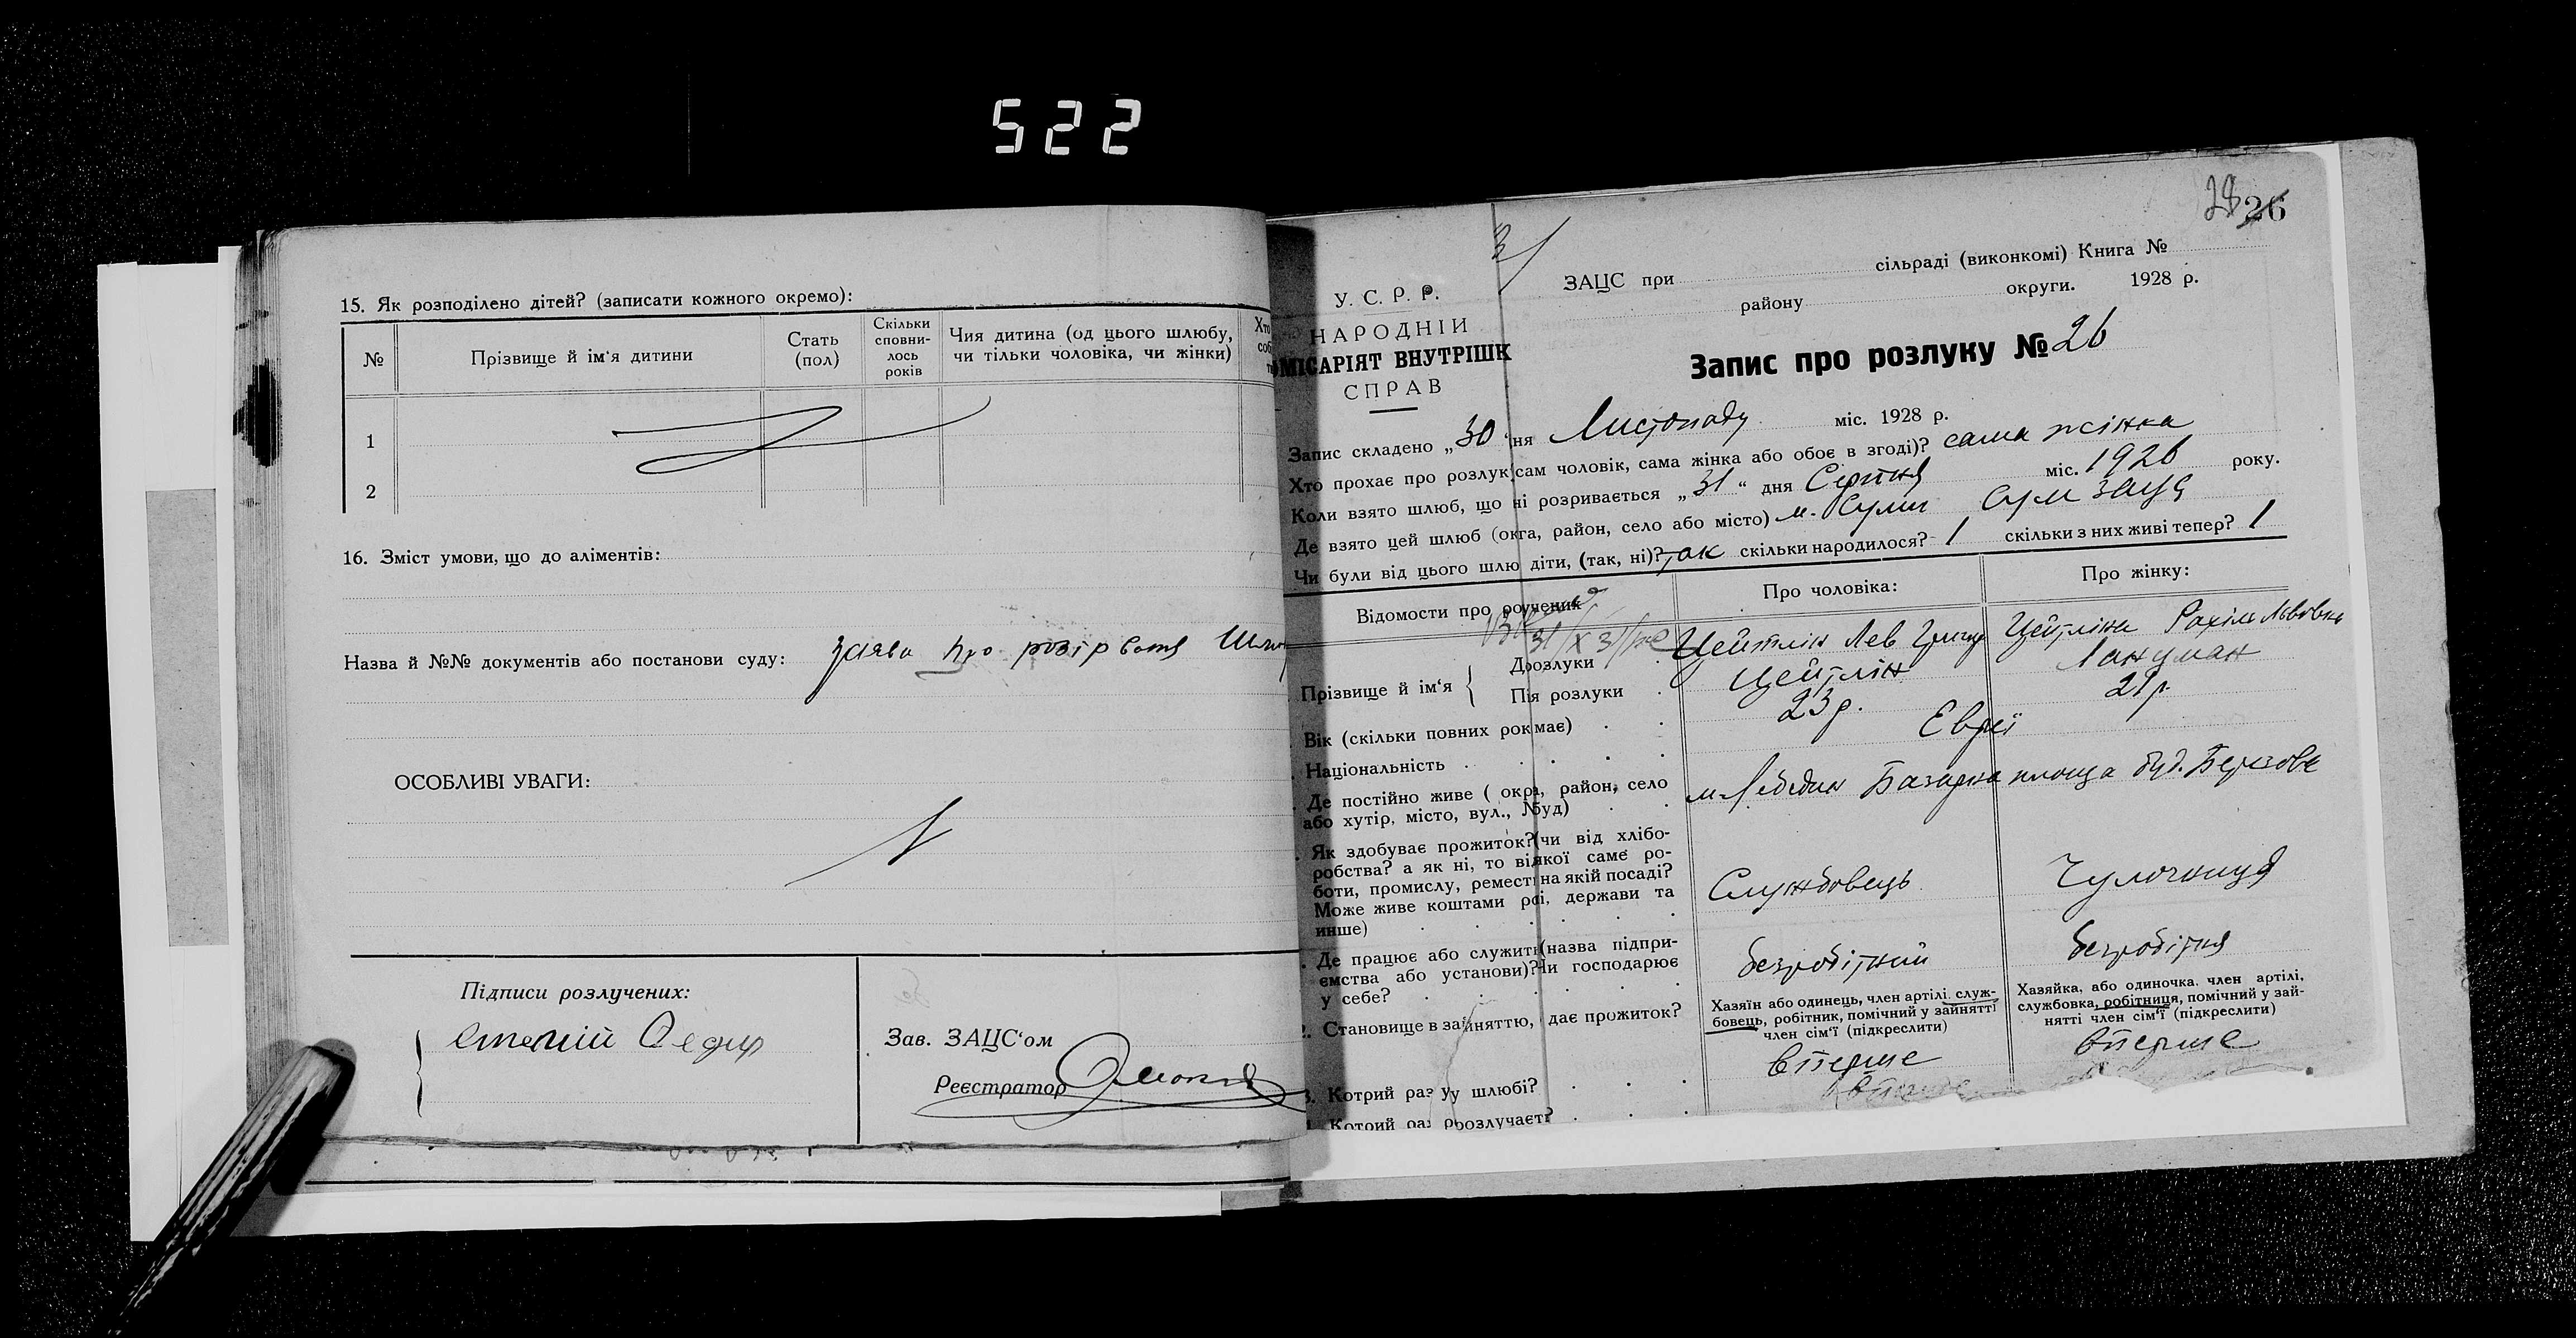 522
15. Як розподілено дітей? (записати кожного окремо):
№ Прізвище й ім‘я дитини Стать (пол) Скільки сповни-лось років Чия дитина (од цього шлюбу, чи тільки чоловіка, чи жінки)
1
2
16. Зміст умови, що до аліментів:
Назва й №№ документів або постанови суду: заява про розірвання
ОСОБЛИВІ УВАГИ:
Підписи розлучених:
Зав. ЗАЦС‘ом
Реєстратор
28 26
У. С. Р. Р.
НАРОДНІЙ
МІСАРІЯТ ВНУТРІШК
СПРАВ
ЗАЦС при сільраді (виконкомі) Книга №
району округи. 1928 р.
Запис про розлуку № 26
Запис складено „30 ня Листопаду міс. 1928 р.
Хто прохає про розлук сам чоловік, сама жінка або обоє в згоді)? сама жінка
Коли взято шлюб, що ні розривається „31“ дня Серпня міс. 1926 року.
Де взято цей шлюб (окга, район, село або місто) м. Суми Сум зацс
Чи були від цього шлю діти, (так, ні)? так скільки народилося? 1 скільки з них живі тепер? 1
Відомости про Про чоловіка: Про жінку:
Прізвище й ім‘я { Дрозлуки Цейтлін Лев Цейтліна Рахіль Львовна
Пія розлуки Цейтлін Ланцман
Вік (скільки повних рок має) 23 р. 21 р.
Національність Евреї
Де постійно живе ( окра, район, село м. Лебедин Базарна площа буд. Березова
або хутір, місто, вул., №буд)
Як здобуває прожиток? (чи від хлібо-
робства? а як ні, то від якої саме ро-
боти, промислу, ремест на якій посаді? Службовець Чулочниця
Може живе коштами рсі, держави та
инше)
Де працює або служить (назва підпри- безробітний безробітня
ємства або установи)? Чи господарює
у себе?
Становище в зайняттю, дає прожиток? Хазяїн або одинець, член артілі, служ-бовець, робітник, помічний у зайнятті член сім‘ї (підкреслити) Хазяйка, або одиночка, член артілі, службовка, робітниця, помічний у зай-нятті член сім‘ї (підкреслити)
Котрий раз у шлюбі? вперше вперше
Котрий раз розлучаєт? вперше